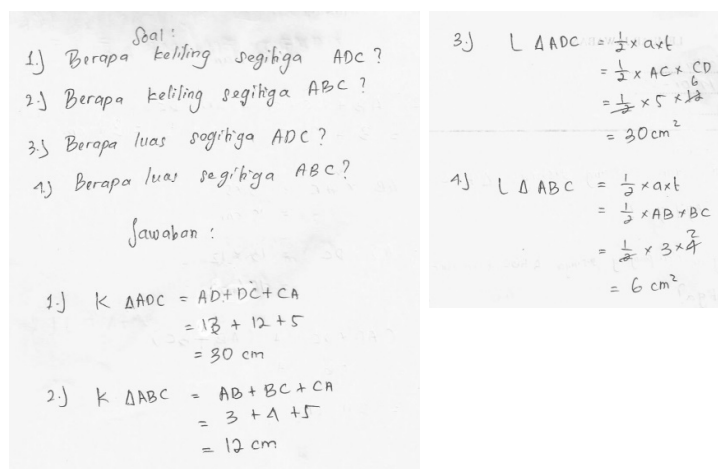 Soal :
1.) Berapa keliling segitiga ADC ?
2.) Berapa keliling segitiga ABC ?
3.) Berapa luas segitiga ADC ?
4.) Berapa luas segitiga ABC ?
Jawaban :
1.) K ΔADC = AD + DC + CA
= 13 + 12 + 5
= 30 cm
2.) K ΔABC = AB + BC + CA
= 3 + 4 + 5
= 12 cm
3.) L ΔADC = 1/2 x a x t
= 1/2 x AC x CD
= 1/2 x 5 x 12 6
= 30 cm²
4.) L Δ ABC = 1/2 x a x t
= 1/2 x AB x BC
= 1/2 x 3 x 4 2
= 6 cm²